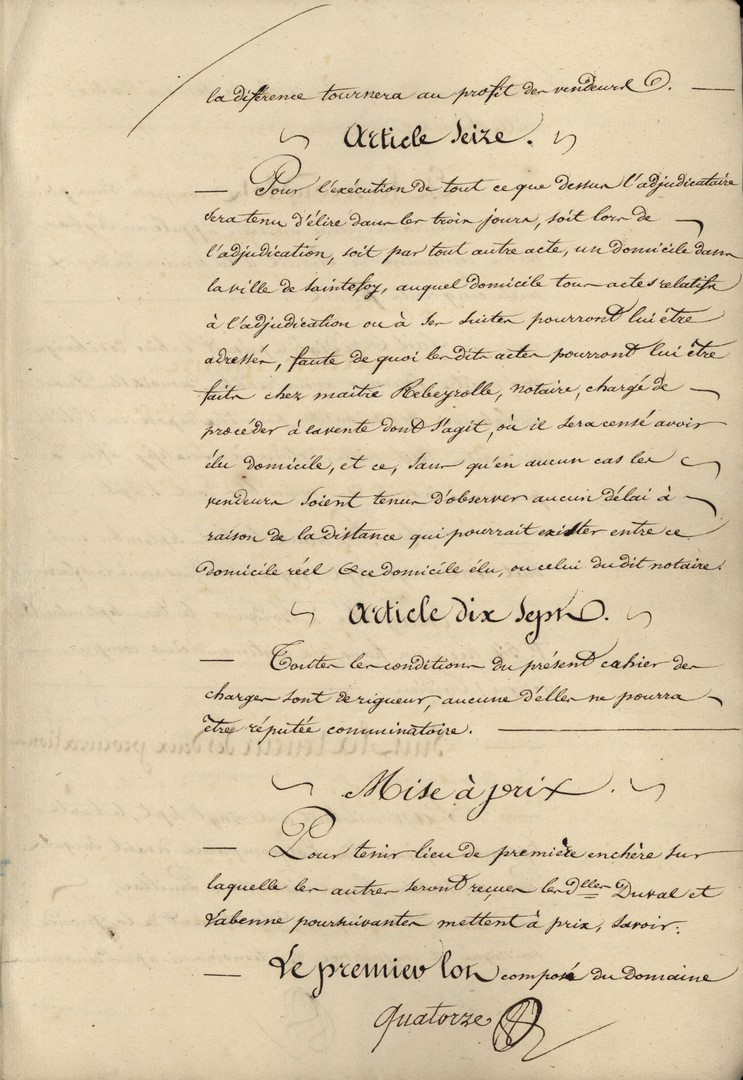 la différence tournera au profit des vendeurs.
Article Seize.
Pour l'exécution de tout ce que dessus l'adjudicataire
sera tenu d'élire dans les trois jours, soit lors de
l'adjudication, soit par tout autre acte, un domicile dans
la ville de Saintefoy, auquel domicile tous actes relatifs
à l'adjudication ou à ses suites pourront lui être
adressés, faute de quoi les dits actes pourront lui être
faits chez maître Rebeyrolle, notaire, chargé de
procéder à la vente dont s'agit, où il sera censé avoir
élu domicile, et ce, sans qu'en aucun cas les
vendeurs soient tenus d'observer aucun délai à
raison de la distance qui pourrait exister entre ce
domicile réel & ce domicile élu, ou celui du dit notaire.
Article dix Sept.
Toutes les conditions du présent cahier des
charges sont de rigueur, aucune d'elles ne pourra
être réputée comminatoire.
Mise à prix.
Pour tenir lieu de première enchère sur
laquelle les autres seront reçues les dlles Duval et
Labenne poursuivantes mettent à prix, savoir:
Le premier lot composé du Domaine
quatorze